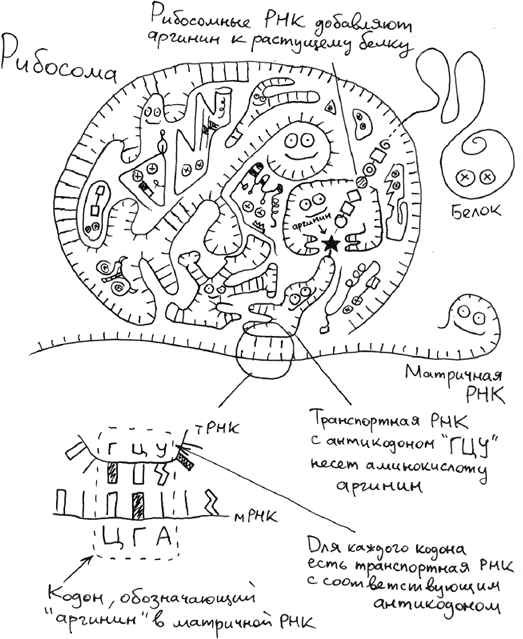 Рибосомные РНК добавляют
аргинин к растущему белку
Рибосома
аргинин
Белок
Матричная
РНК
Транспортная РНК
с антикодоном "ГЦУ"
несет аминокислоту
аргинин
тРНК
Г Ц У
мРНК
Ц Г А
Для каждого кодона
есть транспортная РНК
с соответствующим
антикодоном
Кодон, обозначающий
"аргинин" в матричной РНК